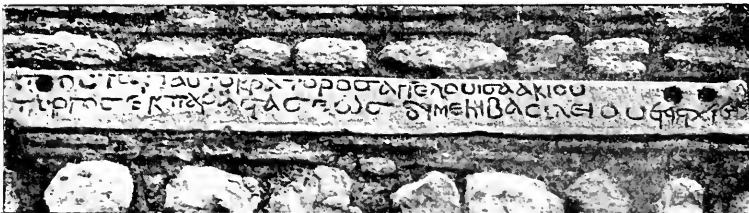 ΑΥΤΟΚΡΑΤΟΡΟC ΑΓΓΕΛΟΥ ΙCΑΑΚΙΟΥ
ΠΥΡΓΟC ΕΚ ΠΑΡΑCΤΑCΕΩC ΔΥΜΕΝΗ ΒΑCΙΛΕΙΟΥ